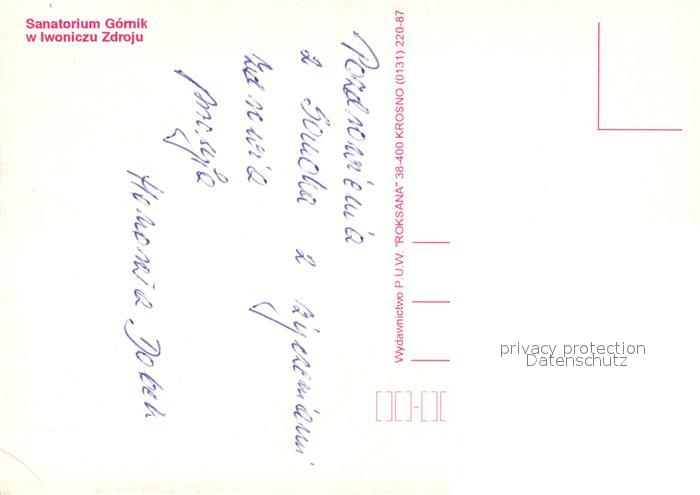 Sanatorium Górnik
w Iwoniczu Zdroju
Pozdrowienia
z z życzeniami
zdrowia
Honorata
Wydawnictwo P.U.W. "ROKSANA" 38-400 KROSNO (0131) 220-87
privacy protection
Datenschutz